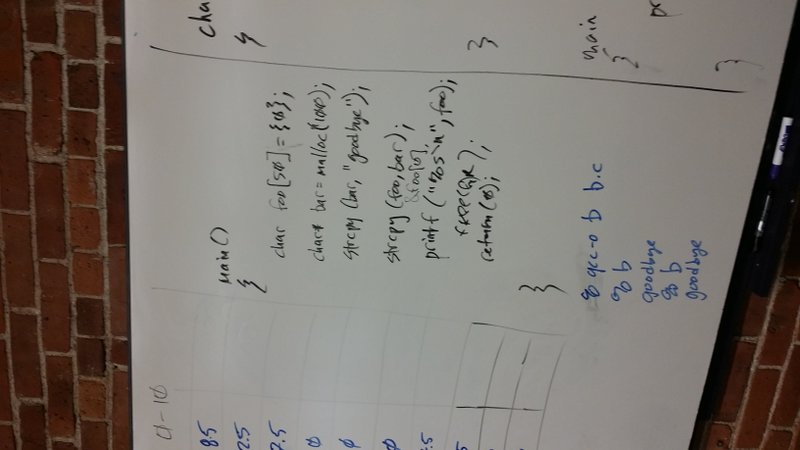 cha
{
}
main
{
pr
}
main()
{
char foo[50]={0};
char* bar=malloc(1040);
strcpy(bar,"goodbye");
strcpy(foo,bar);
&foo[0],
printf("%s\n",foo);
free(bar);
return(0);
}
% gcc -o b b.c
% b
goodbye
% b
goodbye
a-10
8.5
2.5
7.5
0
0
0
.5
5